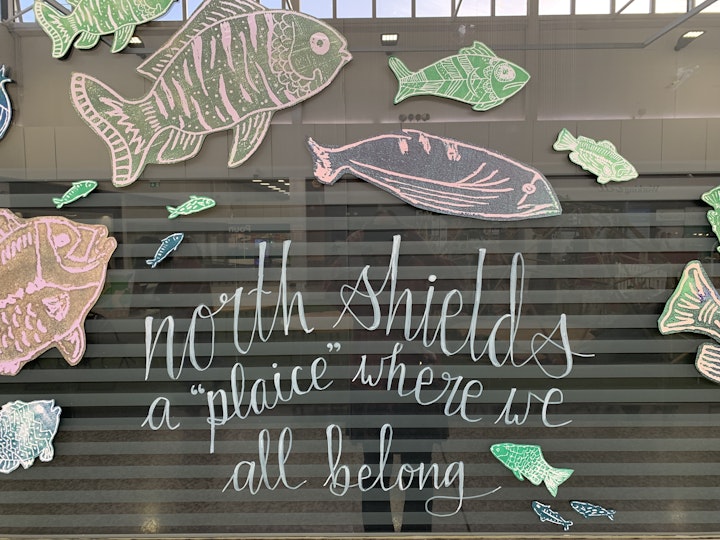 north shields
a "plaice" where we
all belong